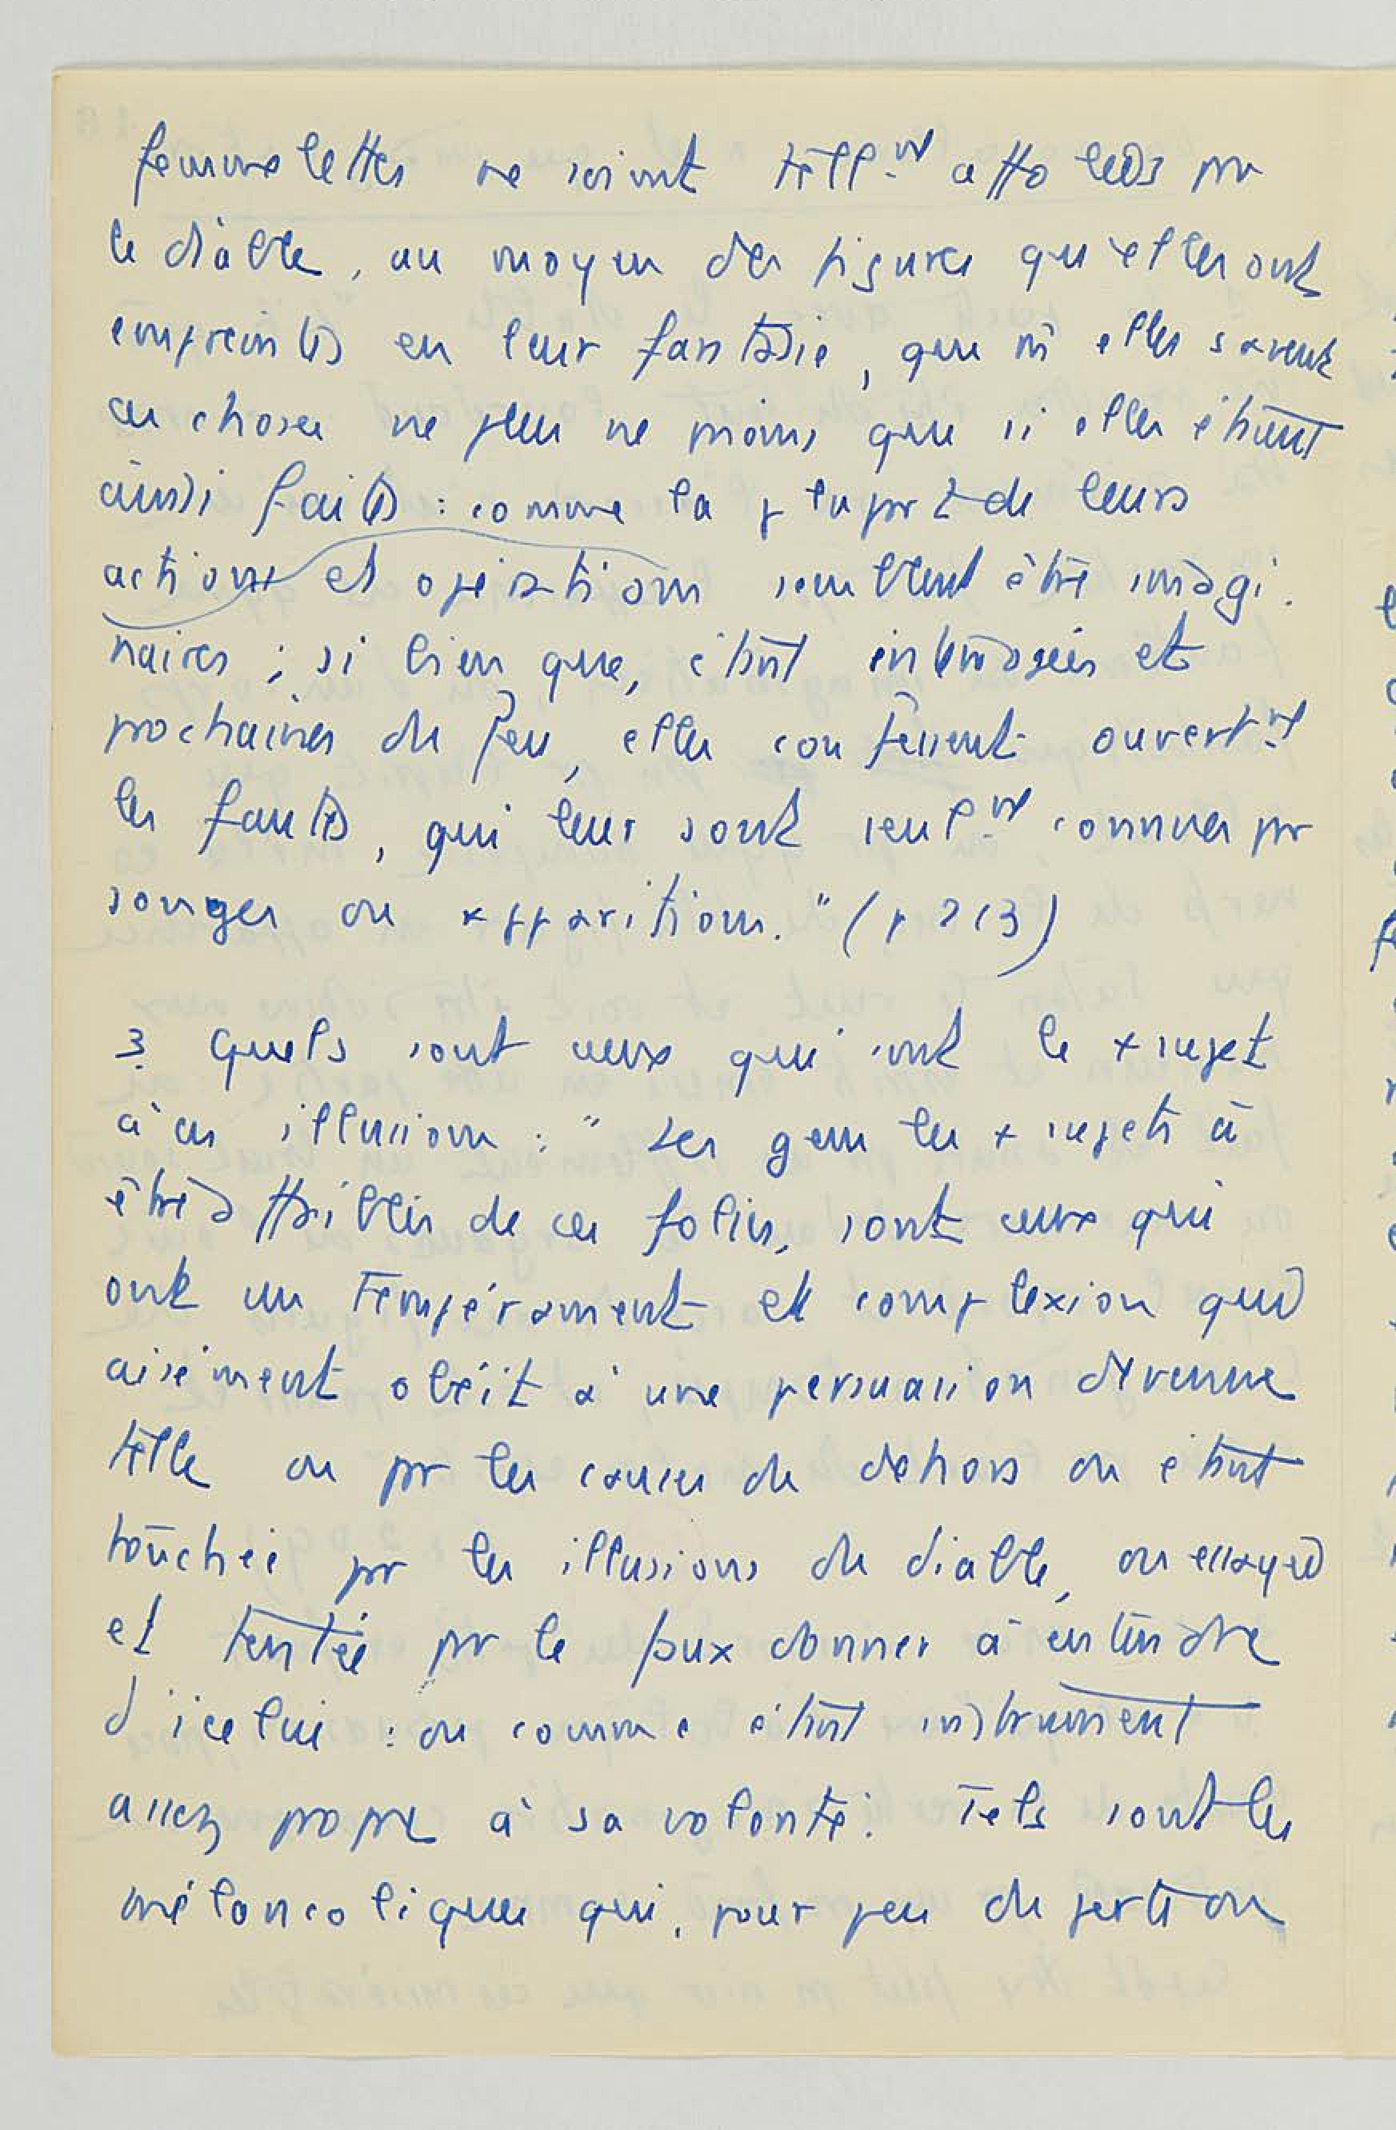 femmelettes ne soient tellmt affolées pr
le diable, au moyen des figures qu'elles ont
empreintes en leur fantasie, que ni elles savent
ces choses ne plus ne moins que si elles étaient
ainsi faites : comme la plupart de leurs
actions et opérations semblent être imagi.
naires ; si bien que, étant interrogées et
prochaines du feu, elles confessent ouvertmt
les fautes, qui leur sont seulmt connues pr
songes ou apparitions." (p 213)
3 Quels sont ceux qui sont le + sujet
à ces illusions : " Les gens les + sujets à
être affaiblis de ces folies, sont ceux qui
ont un tempérament et complexion qui
aisément obéit à une persuasion devenue
telle ou pr les causes du dehors ou étant
touchée pr les illusions du diable, ou essayée
et tentée pr le faux donner à entendre
d'icelui : ou comme étant instrument
assez propre à sa volonté. Tels sont les
mélancoliques qui, pour peu de perte ou